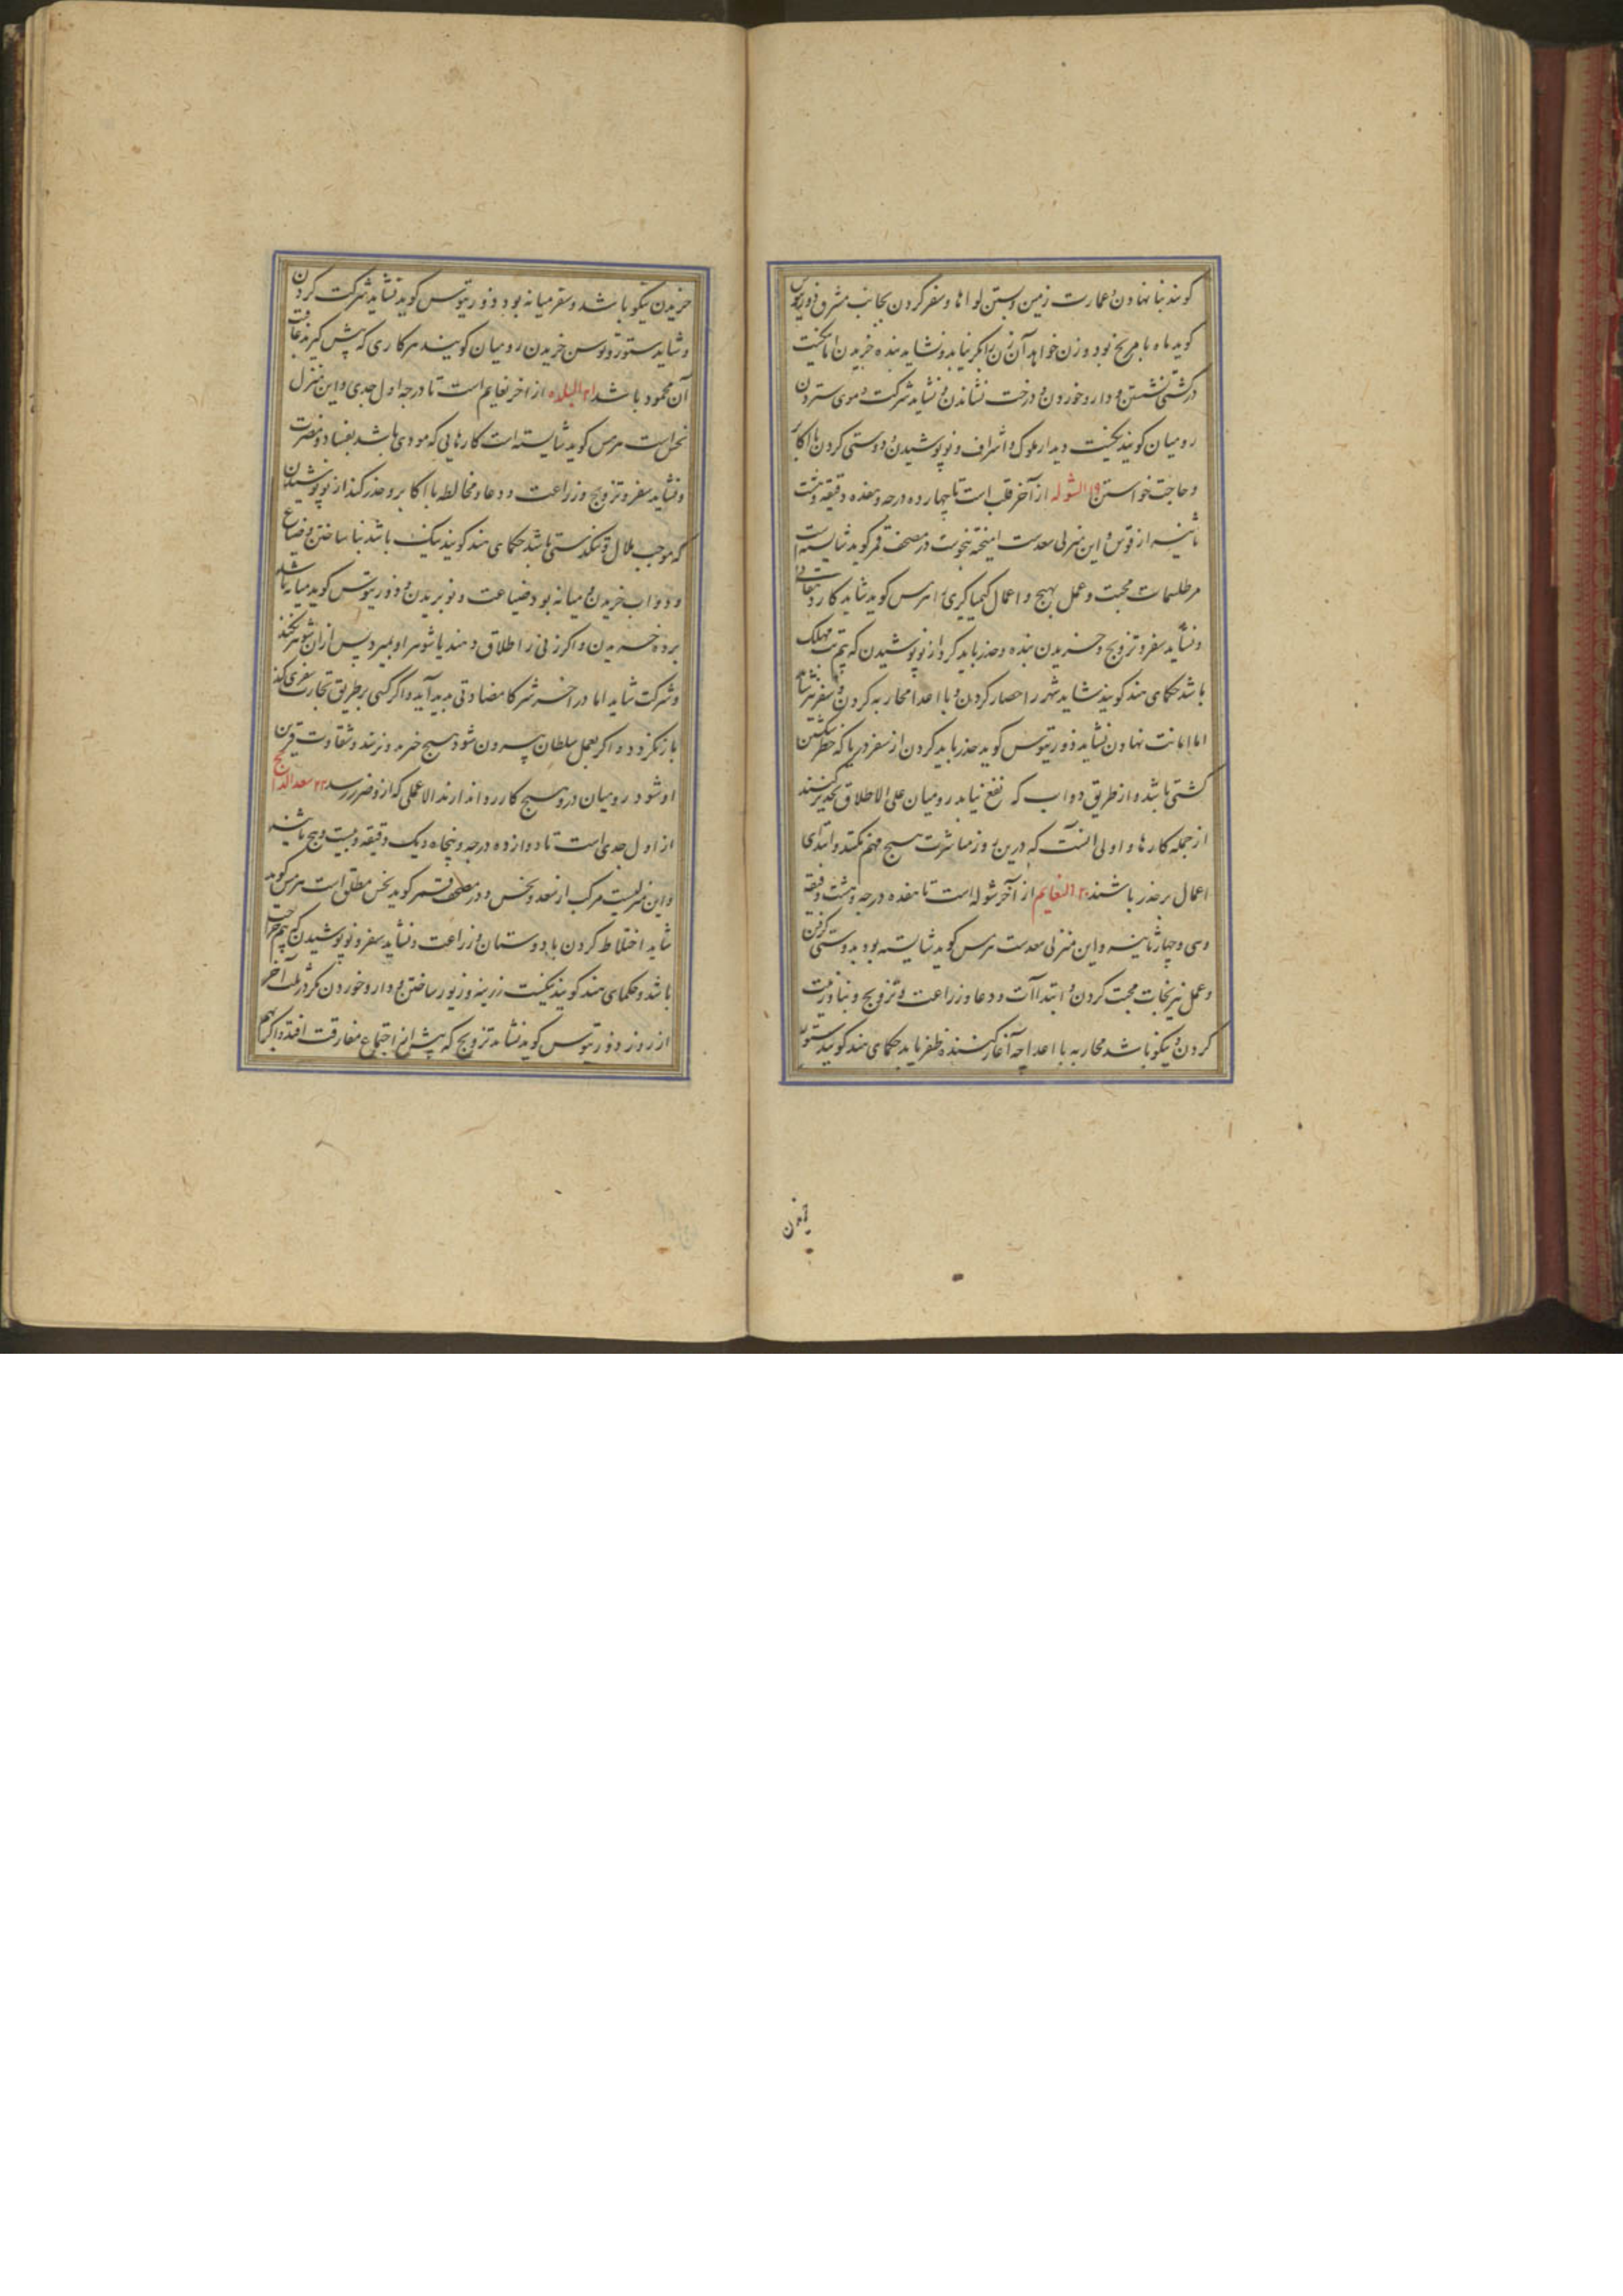 کویند بنا نهادن و عمارت زمین و بستن لواها و سفر کردن بجانب مشرق و ذوریتوس
کوید ماه با مریخ بود و زن خواهد آن زن بکر نیاید و نشاید بنده خریدن اما نیکست
در کشتی نشستن و دارو خوردن و درخت نشاندن و نشاید شرکت و موی ستردن
رومیان کویند نیکست دیدار ملوک و اشراف و نو پوشیدن و دوستی کردن با اکابر
و حاجت خواستن ۱۹ الشوله از آخر قلب است تا چهارده درجه و هفده دقیقه و هشت
ثانیه از قوس و این منزلی سعدست امیخته بنحوست در مصحف قمر کوید شایسته است
مر طلسمات محبت و عمل بهیج و اعمال کیمیاگری را هرمس کوید شاید کار دهقانی
و نشاید سفر و تزویج و خریدن بنده و حذر باید کرد از نو پوشیدن که بیم مهلک
باشد حکمای هند کویند شاید شهر را حصار کردن و با اعدا محاربه کردن و سفر نیز شاید
اما امانت نهادن نشاید ذوریتوس کوید حذر باید کردن از سفر دریا که خطر شکستن
کشتی باشد و از طریق دواب که نفع نیابد رومیان علی الاطلاق تحذیر کنند
از جمله کارها و اولی آنست که درین روز مباشرت هیچ مهم نکنند و ابتدای
اعمال بر حذر باشند ۲۰ النعایم از آخر شوله است تا هفده درجه و هشت دقیقه
و سی و چهار ثانیه و این منزلی سعدست هرمس کوید شایسته بود بدوستی کردن
و عمل نیرنجات محبت کردن و ابتداآت و دعا و زراعت و تزویج و بنا و زینت
کردن و نیکو باشد محاربه با اعدا چه آغاز کننده ظفر یابد حکمای هند کویند ستور
خریدن
خریدن نیکو باشد و سفر میانه بود و ذوریتوس کوید نشاید شرکت کردن
و شاید ستور و توسن خریدن رومیان کویند هر کاری که پیش کیرند عاقبت
آن محمود باشد ۲۱ البلده از اخر نعایم است تا درجه اول جدی و این منزل
نحس است هرمس کوید شایسته است کارهایی که مودی باشد بفساد و مضرت
و نشاید سفر و تزویج و زراعت و دعا و مخالطه با اکابر و حذر کند از نو پوشیدن
که موجب ملال و تنکدستی باشد حکمای هند کویند نیک باشد بنا ساختن و ضیاع
و دواب خریدن و میانه بود ضیاعت و نو بریدن و ذوریتوس کوید میانه باشد
برده خریدن و اکر زنی را طلاق دهند یا شوهر او بمیرد پس از آن شوهر نکند
و شرکت شاید اما در اخر شرکا مضادتی پدید آید و اکر کسی بر طریق تجارت سفری کند
باز نکردد و اکر بعمل سلطان بیرون شود هیچ خیر نه ورزند و شقاوت قرین
او شود رومیان درو هیچ کار روا ندارند الا عملی که ازو ضرر رسد ۲۲ سعد الذابح
از اول جدی است تا دوازده درجه و پنجاه و یک دقیقه و بیست و پنج ثانیه
و این منزلیست مرکب از سعد و نحس و در مصحف قمر کوید نحس مطلق است هرمس کوید
شاید اختلاط کردن با دوستان و زراعت و نشاید سفر و نو پوشیدن که بیم جراحت
باشد و حکمای هند کویند نیکست زرینه و زیور ساختن و دارو خوردن مکر در ثلث آخر
از روز ذوریتوس کوید نشاید تزویج که پیش از اجتماع مفارقت افتد و اکر بهم